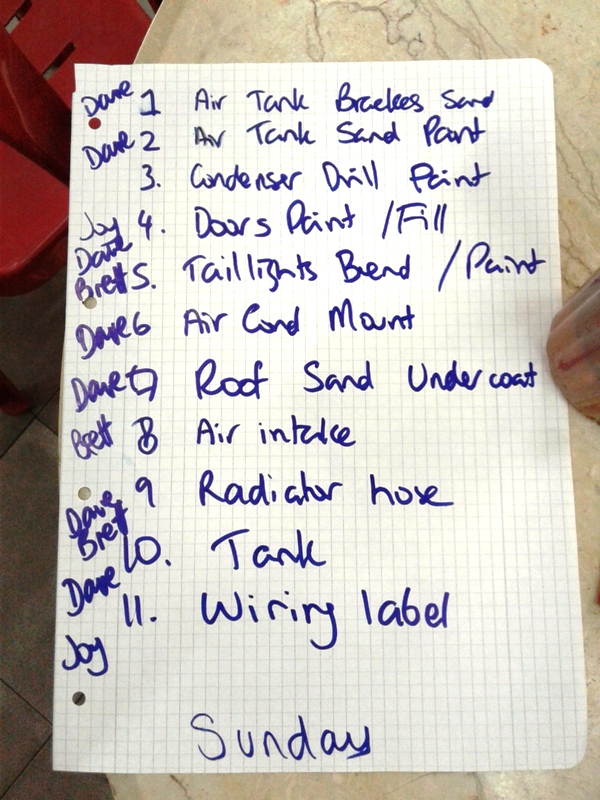 Dave 1 Air Tank Brackes Sand
Dave 2 Air Tank Sand Paint
3. Condenser Drill Paint
Joy 4. Doors Paint / Fill
Dave
Brett 5. Taillights Bend / Paint
Dave 6 Air Cond Mount
Dave 7 Roof Sand Undercoat
Brett 8 Air intake
9 Radiator hose
Dave
Brett
10. Tank
Dave
11. Wiring label
Joy
Sunday